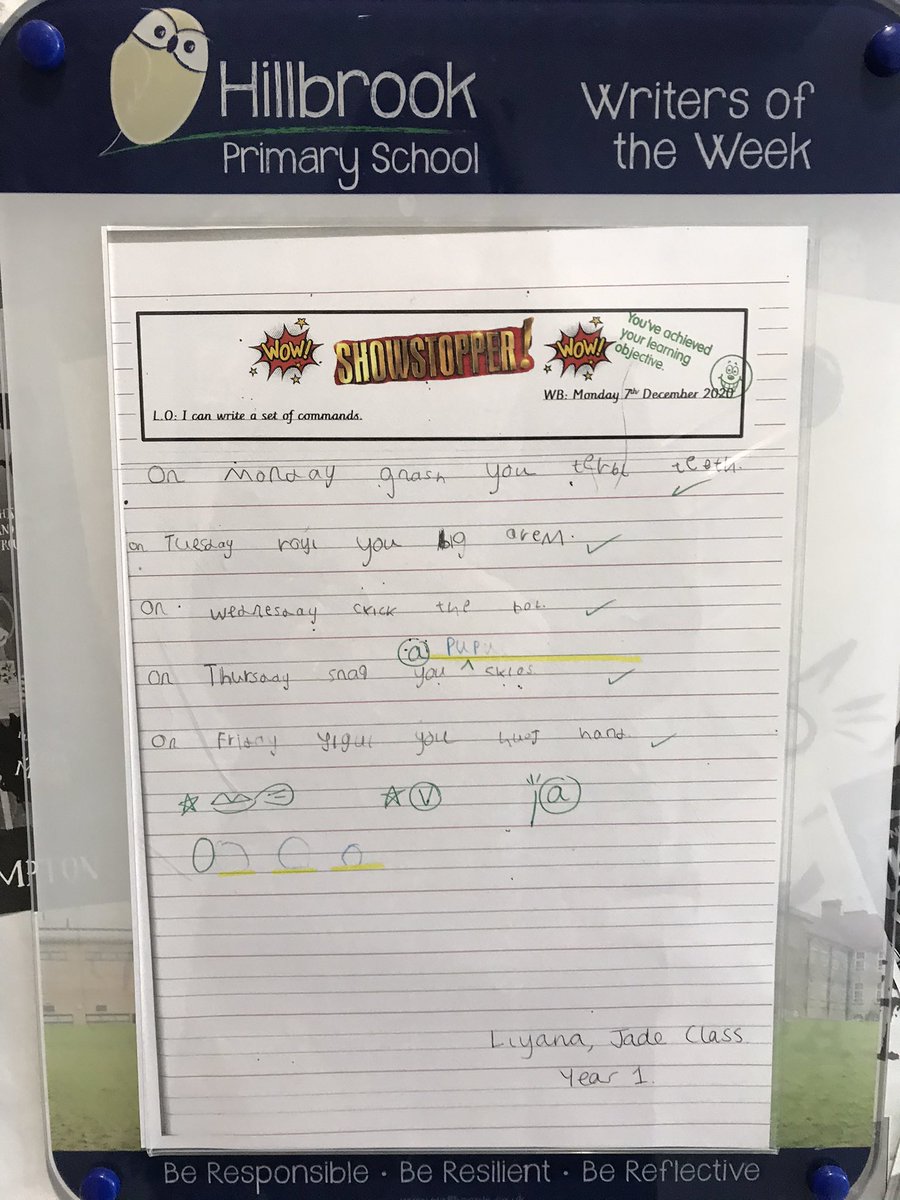 Hillbrook
Primary School
Writers of
the Week
WOW!
SHOWSTOPPER!
WOW!
You've achieved
your learning
objective.
WB: Monday 7th December 2020
L.O: I can write a set of commands.
On Monday gnash you terbl teeth.
on Tuesday royi you big arem.
On Wednesday ckick the bol.
a pupu
On Thursday snag you ckies.
On Friday you hand.
V
a
Liyana, Jade Class
Year 1.
Be Responsible · Be Resilient · Be Reflective